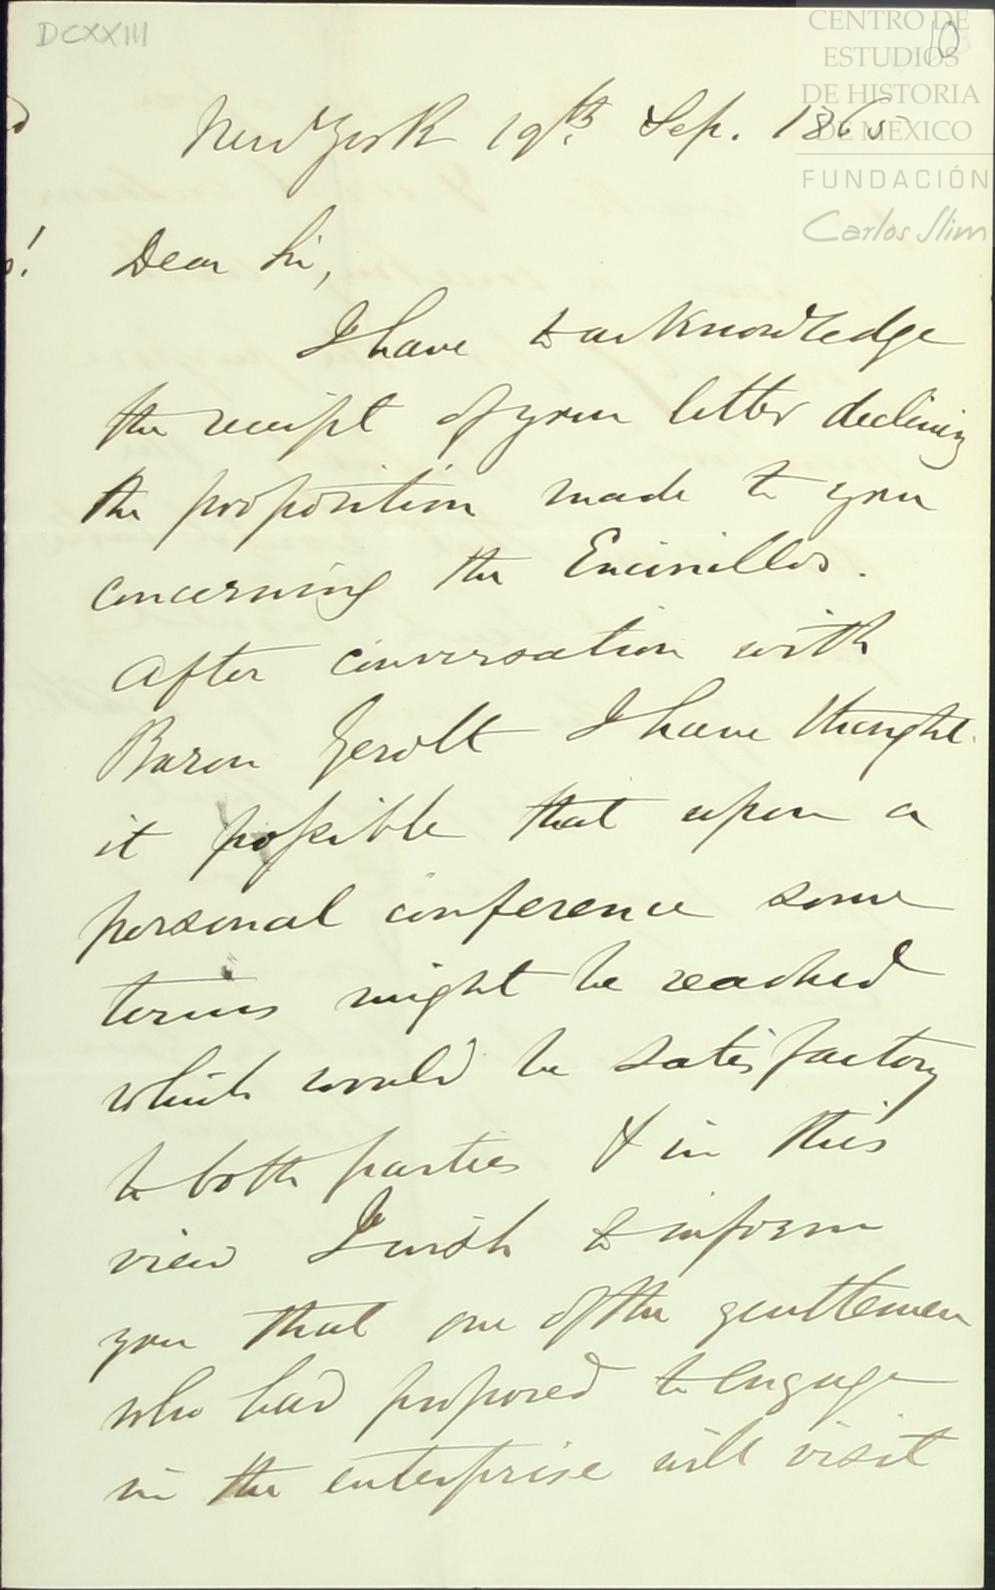 DCXXIII
10
CENTRO DE
ESTUDIOS
DE HISTORIA
DE MEXICO
FUNDACIÓN
Carlos Slim
New York 19th. Sep. 1865
Dear Sir,
I have to acknowledge
the receipt of your letter declining
the proposition made to you
concerning the Encinillos.
After conversation with
Baron Gerolt I have thought
it possible that upon a
personal conference some
terms might be reached
which would be satisfactory
to both parties & in this
view I wish to inform
you that one of the gentlemen
who had proposed to engage
in the enterprise will visit